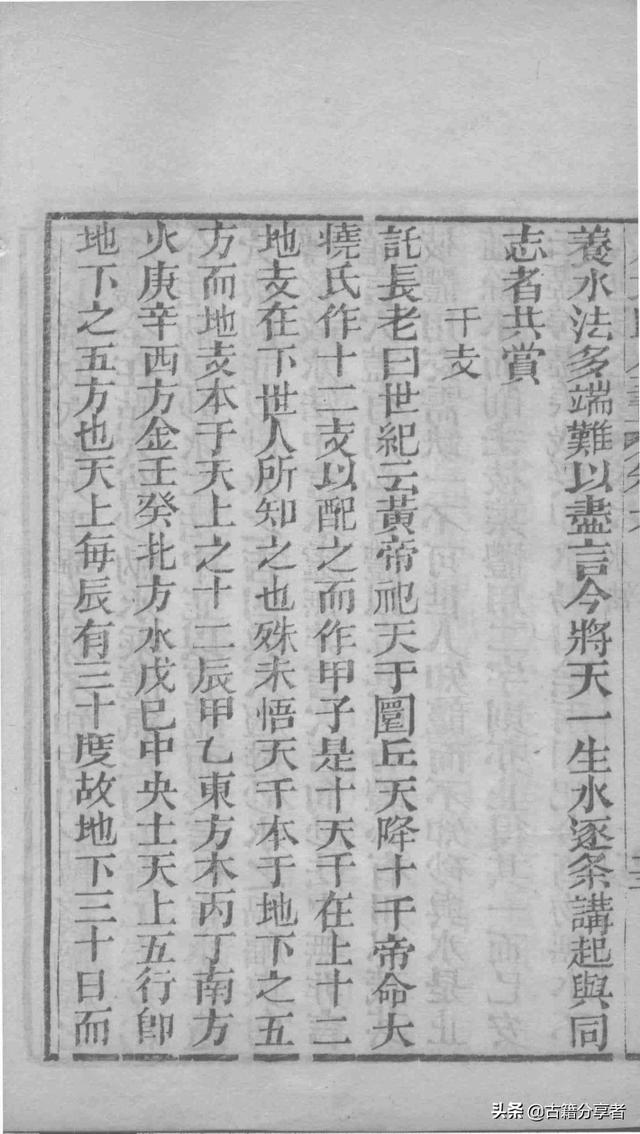 義水法多端難以盡言今將天一生水逐条講起與同
志者共賞
干支
託長老曰世紀云黃帝祀天于圜丘天降十干帝命大
撓氏作十二支以配之而作甲子是十天干在上十二
地支在下世人所知之也殊未悟天干本于地下之五
方而地支本于天上之十二辰甲乙東方木丙丁南方
火庚辛西方金壬癸北方水戊巳中央土天上五行卽
地下之五方也天上每辰有三十度故地下三十日而
头条 @古籍分享者